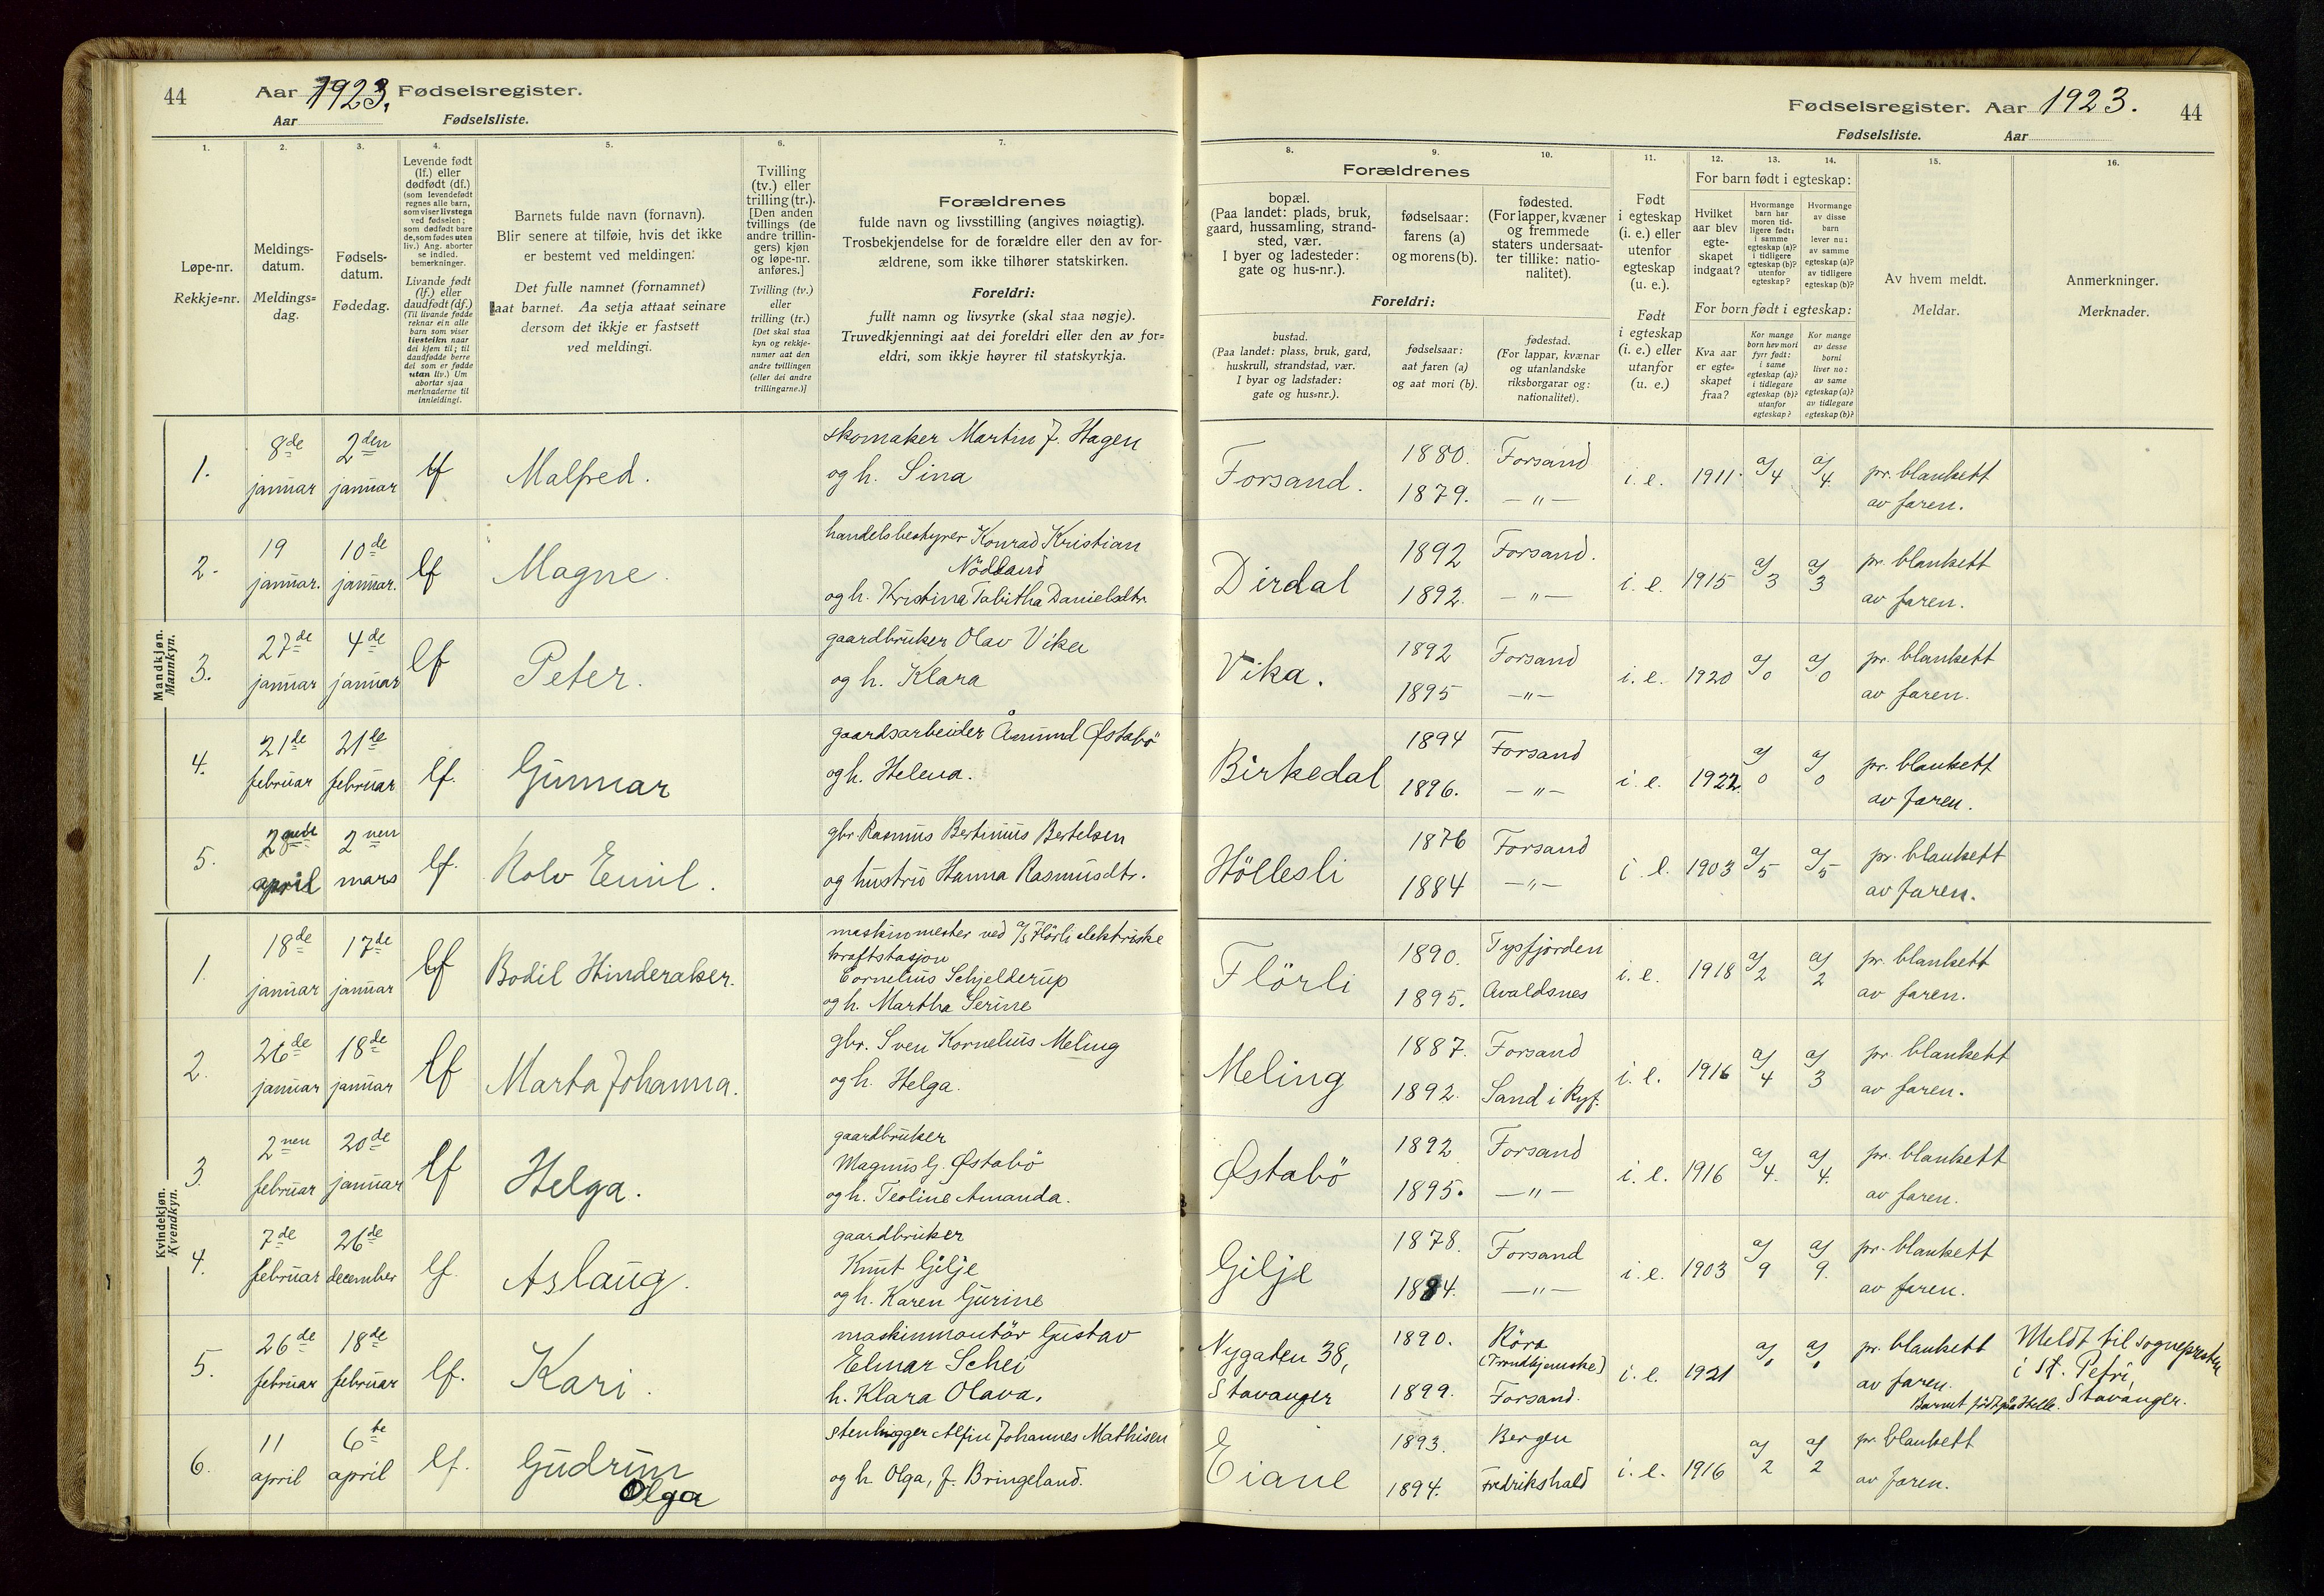 44 Aar 1923. Fødselsregister.
Aar Fødselsliste.
1. 2. 3. 4. 5. 6. 7.
Løpe-nr.
Rekkje=nr.
Meldings-
datum.
Meldings=
dag.
Fødsels-
datum.
Fødedag.
Levende født
(lf.) eller
dødfødt (df.)
(som levendefødt
regnes alle barn,
som viser livstegn
ved fødselen;
som dødfødt bare
de, som fødes uten
liv.) Ang. aborter
se indled.
bemerkninger.
Livande født
(lf.) eller
daudfødt (df.)
(Til livande fødde
reknar ein alle
barn som viser
livsteikn naar
dei kjem til; til
daudfødde berre
dei som er fødde
utan liv.) Um
abortar sjaa
merknaderne til
innleidingi.
Barnets fulde navn (fornavn).
Blir senere at tilføie, hvis det ikke
er bestemt ved meldingen:
Det fulle namnet (fornamnet)
aat barnet. Aa setja attaat seinare
dersom det ikkje er fastsett
ved meldingi.
Tvilling
(tv.) eller
trilling (tr.).
[Den anden
tvillings (de
andre trillin-
gers) kjøn
og løpe-nr.
anføres.]
Tvilling (tv.)
eller
trilling (tr.)
[Det skal staa
kyn og rekkje-
numer aat den
andre tvillingen
(eller dei andre
trillingarne.)]
Forældrenes
fulde navn og livsstilling (angives nøiagtig).
Trosbekjendelse for de forældre eller den av for-
ældrene, som ikke tilhører statskirken.
Foreldri:
fullt namn og livsyrke (skal staa nøgje).
Truvedkjenningi aat dei foreldri eller den av for=
eldri, som ikkje høyrer til statskyrkja.
Mandkjøn.
Mankyn.
1. 8de januar 2den januar lf Malfred. skomaker Martin J. Hagen
og h. Sina
2. 19 januar. 10de januar. lf Magne. handelsbestyrer Konrad Kristian
Nödland
og h. Kristina Tabitha Danielsdtr.
3. 27de januar 4de januar lf Peter. gaardbruker Olav Vika
og h. Klara
4. 21de februar 21de februar lf. Gunnar gaardsarbeider Åmund Østabö
og h. Helena.
5. april 2nen mars lf. Rolv Emil. gbr. Rasmus Bertinius Bertelsen
og hustru Hanna Rasmusdtr.
Kvindekjøn.
Kvendkyn.
1. 18de januar 17de januar lf Bodil Hinderaker. maskinmester ved a/s Flörli elektriske
kraftstasjon
Cornelius Schjelderup
og h. Martha Serine
2. 26de januar 18de januar lf Marta Johanna. gbr. Sven Kornelius Meling
og h. Helga.
3. 2nen februar 20de januar lf Helga. gaardbruker
Magnus G. Østabö
og h. Teoline Amanda.
4. 7de februar 26de december lf. Aslaug. gaardbruker
Knut Gilje
og h. Karen Gurine
5. 26de februar 18de februar lf. Kari. maskinmontör Gustav
Elmar Schei
h. Klara Olava.
6. 11 april 6te april lf. Gudrun
Olga stenhugger Alfin Johannes Mathisen
og h. Olga, f. Bringeland.
Fødselsregister. Aar 1923. 44
Fødselsliste. Aar
8. 9. 10. 11. 12. 13. 14. 15. 16.
Forældrenes
bopæl.
(Paa landet: plads, bruk,
gaard, hussamling, strand-
sted, vær.
I byer og ladesteder:
gate og hus-nr.).
fødselsaar:
farens (a)
og morens (b).
fødested.
(For lapper, kvæner
og fremmede
staters undersaat-
ter tillike: natio-
nalitet).
Foreldri:
bustad.
(Paa landet: plass, bruk, gard,
huskrull, strandstad, vær.
I byar og ladstader:
gate og hus=nr.).
fødselsaar:
aat faren (a)
og aat mori (b).
fødestad.
(For lappar, kvænar
og utanlandske
riksborgarar og:
nationalitet).
Født
i egteskap
(i. e.) eller
utenfor
egteskap
(u. e.).
Født
i egteskap
(i. e.) eller
utanfor
(u. e.)
For barn født i egteskap:
Hvilket
aar blev
egte-
skapet
indgaat?
Hvormange
barn har
moren tid-
ligere født:
i samme
egteskap (a)?
utenfor
egteskap?
Hvormange
av disse
barn
lever nu:
av samme
egteskap (a)?
av tidligere
egteskap (b)?
For born født i egteskap:
Kva aar
er egte=
skapet
fraa?
Kor mange
born hev mori
fyrr født:
i same
egteskap (a)?
i tidlegare
egteskap (b)?
utanfor
egteskap?
Kor mange
av desse
borni
liver no:
av same
egteskap (a)?
av tidlegare
egteskap (b)?
Av hvem meldt.
Meldar.
Anmerkninger.
Merknader.
Forsand. 1880. Forsand i. e. 1911. a/4 a/4. pr. blankett
1879. —"— av faren.
Dirdal 1892 Forsand. i. e. 1915 a/3 a/3 pr. blankett
1892. —"— av faren.
Vika. 1892 Forsand i. e. 1920 a/0 a/0 pr. blankett
1895 —"— av faren.
Birkedal 1894 Forsand i. e. 1922. a/0 a/0 pr. blankett
1896. —"— av faren.
Höllesli 1876 Forsand i. e. 1903 a/5 a/5 pr. blankett
1884 —"— av faren.
Flörli 1890. Tysfjorden i. e. 1918 a/2 a/2 pr. blankett
1895. Avaldsnes av faren.
Meling 1887. Forsand i. e. 1916 a/4 a/3 pr. blankett
1892. Sand i Ryf. av faren.
Østabö 1892 Forsand i. e. 1916 a/4. a/4. pr. blankett
1895. —"— av faren.
Gilje 1878. Forsand i. e. 1903 a/9 a/9. pr. blankett
1884. —"— av faren.
Nygaten 38,
Stavanger 1890. (Trondhjemske) i. e. 1921 pr. blankett Meldt til sogneprsten
1899. Forsand. av faren. i St. Petri,
Barnet född på Helle. Stavanger.
Eiane 1893. Bergen i. e. 1916 a/2 a/2 pr. blankett
1894. Fredrikshald av faren.